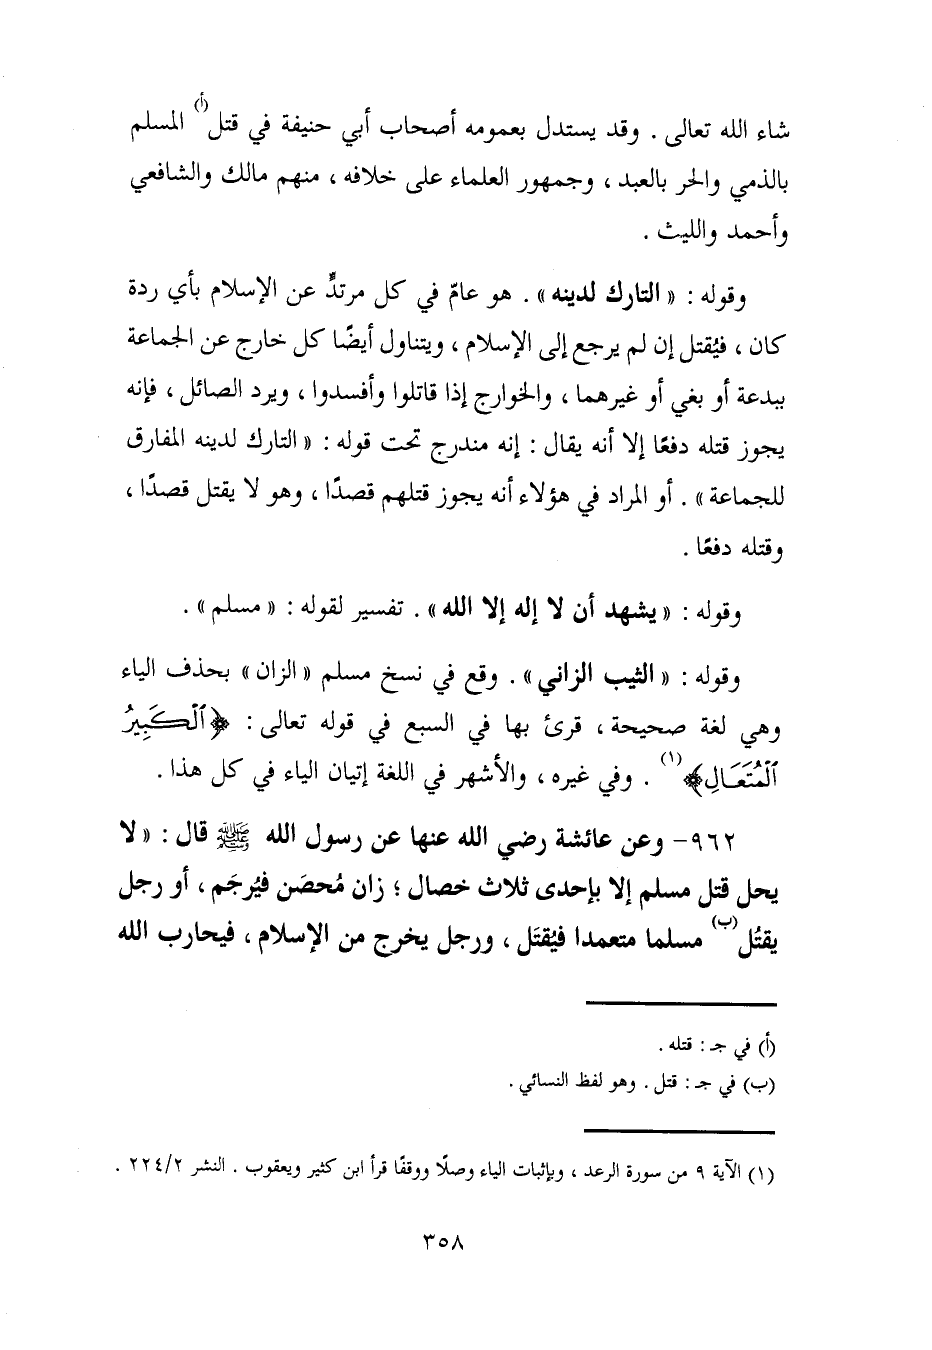 شاء الله تعالى . وقد يستدل بعمومه أصحاب أبي حنيفة في قتل(أ) المسلم
بالذمي والحر بالعبد ، وجمهور العلماء على خلافه ، منهم مالك والشافعي
وأحمد والليث .
وقوله : « التارك لدينه » . هو عامّ في كل مرتدٍّ عن الإسلام بأي ردة
كان ، فيُقتل إن لم يرجع إلى الإسلام ، ويتناول أيضًا كل خارج عن الجماعة
ببدعة أو بغي أو غيرهما ، والخوارج إذا قاتلوا وأفسدوا ، ويرد الصائل ، فإنه
يجوز قتله دفعًا إلا أنه يقال : إنه مندرج تحت قوله : « التارك لدينه المفارق
للجماعة » . أو المراد في هؤلاء أنه يجوز قتلهم قصدًا ، وهو لا يقتل قصدًا ،
وقتله دفعًا .
وقوله : « يشهد أن لا إله إلا الله » . تفسير لقوله : « مسلم » .
وقوله : « الثيب الزاني » . وقع في نسخ مسلم « الزان » بحذف الياء
وهي لغة صحيحة ، قرئ بها في السبع في قوله تعالى : ﴿ٱلْكَبِيرُ
ٱلْمُتَعَالِ﴾(١) . وفي غيره ، والأشهر في اللغة إتيان الياء في كل هذا .
٩٦٢- وعن عائشة رضي الله عنها عن رسول الله ﷺ قال : « لا
يحل قتل مسلم إلا بإحدى ثلاث خصال ؛ زان مُحصَن فيُرجَم ، أو رجل
يقتُل(ب) مسلما متعمدا فيُقتَل ، ورجل يخرج من الإسلام ، فيحارب الله
(أ) في جـ : قتله .
(ب) في جـ : قتل . وهو لفظ النسائي .
(١) الآية ٩ من سورة الرعد ، وبإثبات الياء وصلًا ووقفًا قرأ ابن كثير ويعقوب . النشر ٢/ ٢٢٤ .
٣٥٨